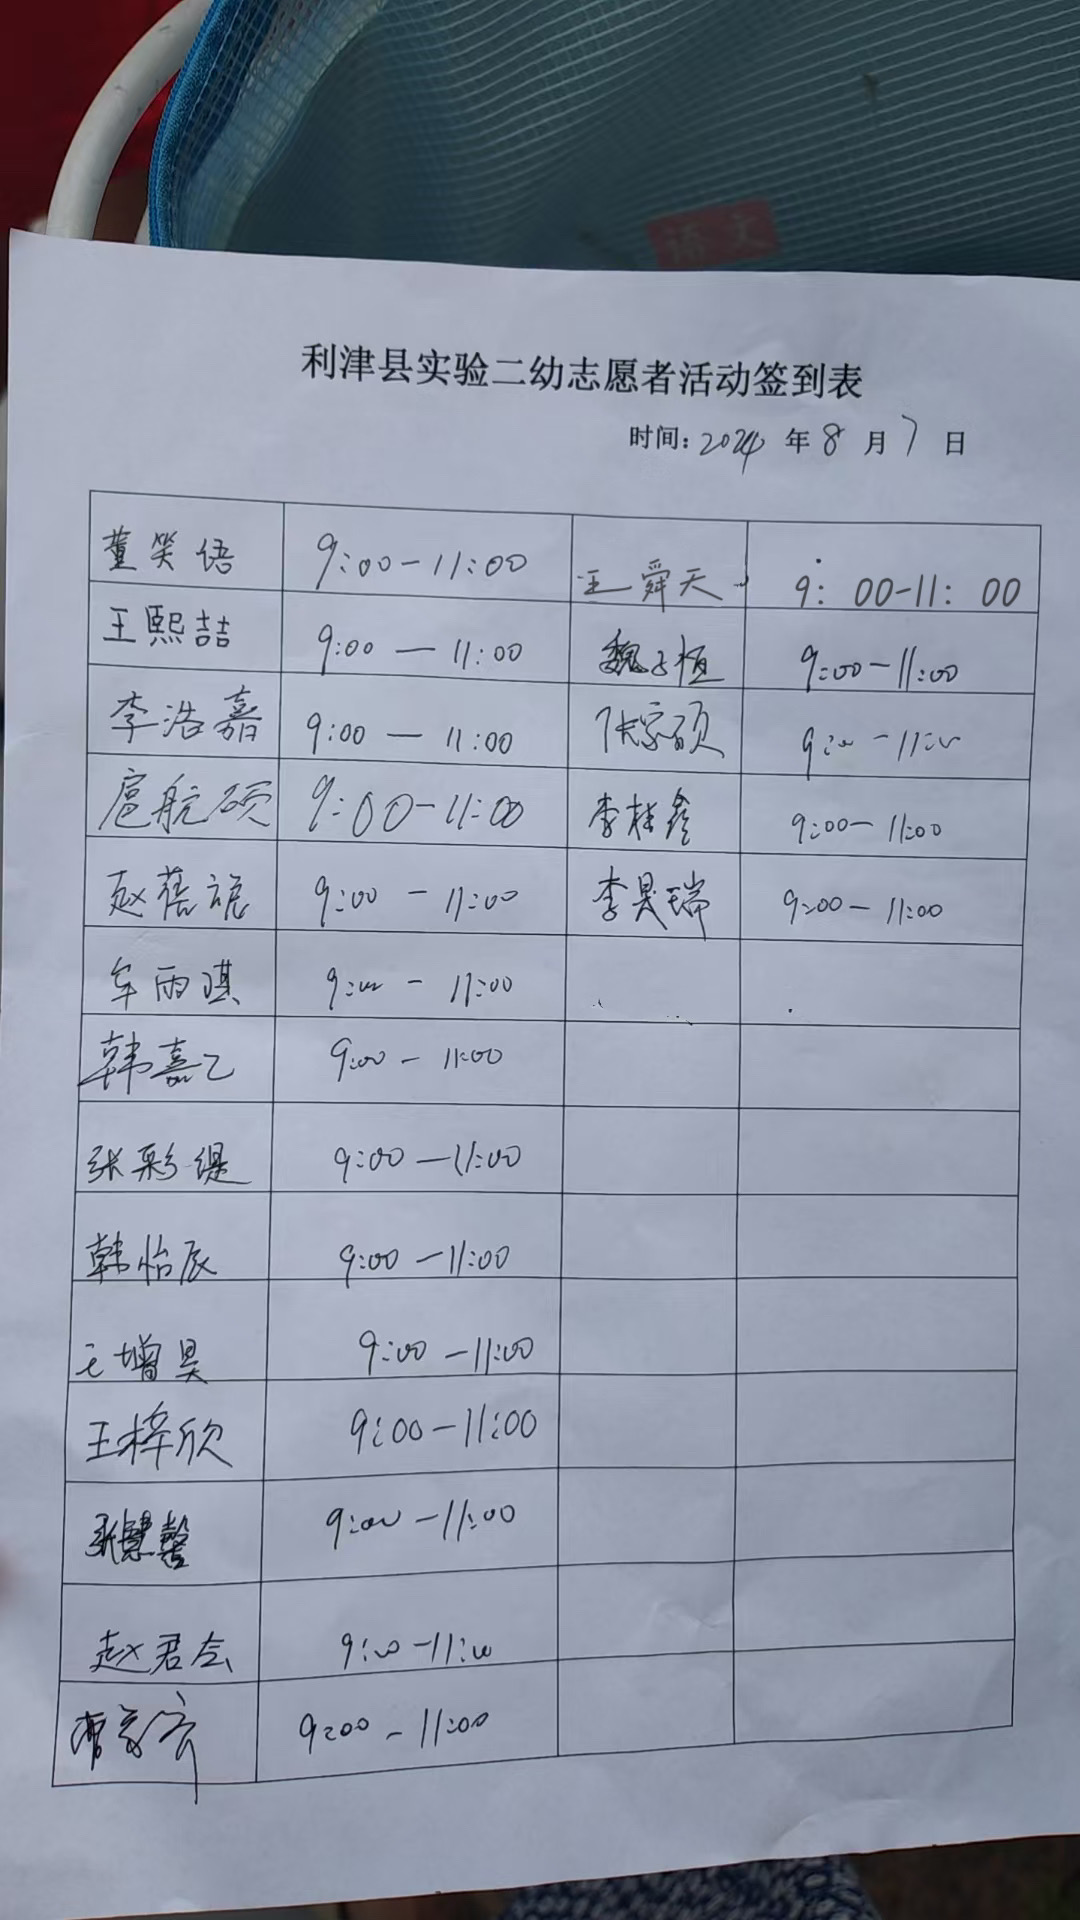 语文
利津县实验二幼志愿者活动签到表
时间：2024 年 8 月 7 日
董笑语 9:00-11:00 王舜天 9:00-11:00
王熙喆 9:00-11:00 魏子恒 9:00-11:00
李浩嘉 9:00-11:00 张家硕 9:00-11:00
扈航硕 9:00-11:00 李桂鑫 9:00-11:00
赵蓓 9:00-11:00 李昊瑞 9:00-11:00
牟雨琪 9:00-11:00
韩嘉乙 9:00-11:00
张彩缇 9:00-11:00
韩怡辰 9:00-11:00
王增昊 9:00-11:00
王梓欣 9:00-11:00
张慧馨 9:00-11:00
赵君 9:00-11:00
9:00-11:00